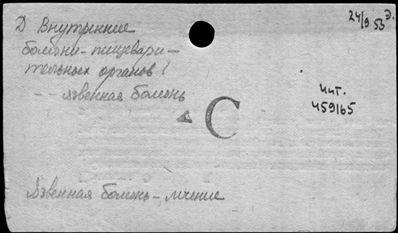 Д Внутренние
болезни - пищевари-
тельных органов /
- язвенная болезнь
24/9 53 Э.
инт.
459165
С
Язвенная болезнь - лечение